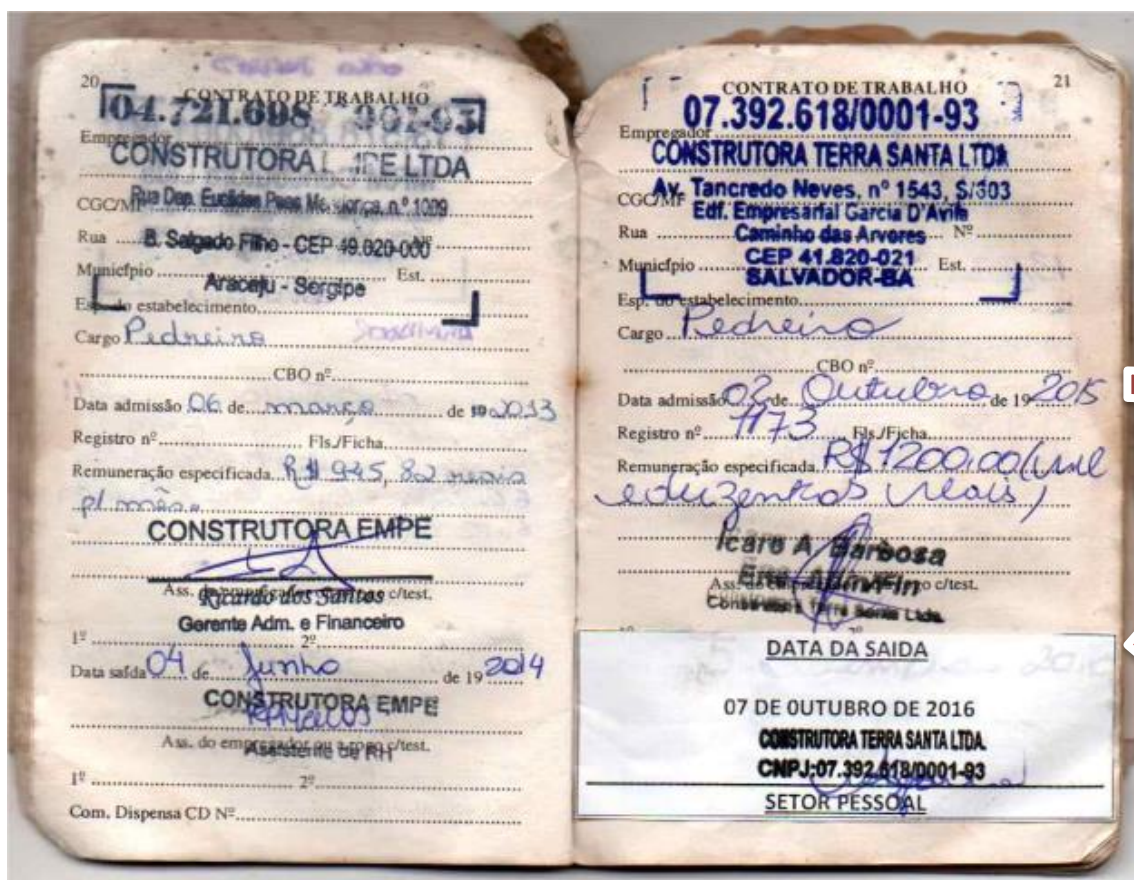 20
CONTRATO DE TRABALHO
04.721.698
Empregador
CONSTRUTORA LTDA
CGC/MF Rua Dep. Euclides Paes n.º 1009
Rua B. Salgado Filho - CEP 49.020-000 Nº
Município Est.
Aracaju - Sergipe
Esp. do estabelecimento
Cargo Pedreiro
CBO nº
Data admissão 06 de março de 19 2013
Registro nº Fls./Ficha
Remuneração especificada R$ 945,82 reais
p/ mês.
CONSTRUTORA EMPE
Ass. do empregador ou a rogo c/test.
Ricardo dos Santos
Gerente Adm. e Financeiro
1º 2º
Data saída 04 de Junho de 19 2014
CONSTRUTORA EMPE
Ass. do empregador ou a rogo c/test.
Assistente de RH
1º 2º
Com. Dispensa CD Nº
21
CONTRATO DE TRABALHO
07.392.618/0001-93
Empregador
CONSTRUTORA TERRA SANTA LTDA
CGC/MF Av. Tancredo Neves, nº 1543, S/303
Edf. Empresarial Garcia D'Avila
Rua Caminho das Arvores Nº
Município CEP 41.820-021 Est.
SALVADOR-BA
Esp. do estabelecimento
Cargo Pedreiro
CBO nº
Data admissão 02 de Outubro de 19 2015
Registro nº 1173 Fls./Ficha
Remuneração especificada R$ 1200,00 (mil
e duzentos reais)
Icaro A. Barbosa
Ass. do c/test.
Construtora Terra Santa Ltda.
DATA DA SAIDA
07 DE OUTUBRO DE 2016
CONSTRUTORA TERRA SANTA LTDA.
CNPJ:07.392.618/0001-93
SETOR PESSOAL